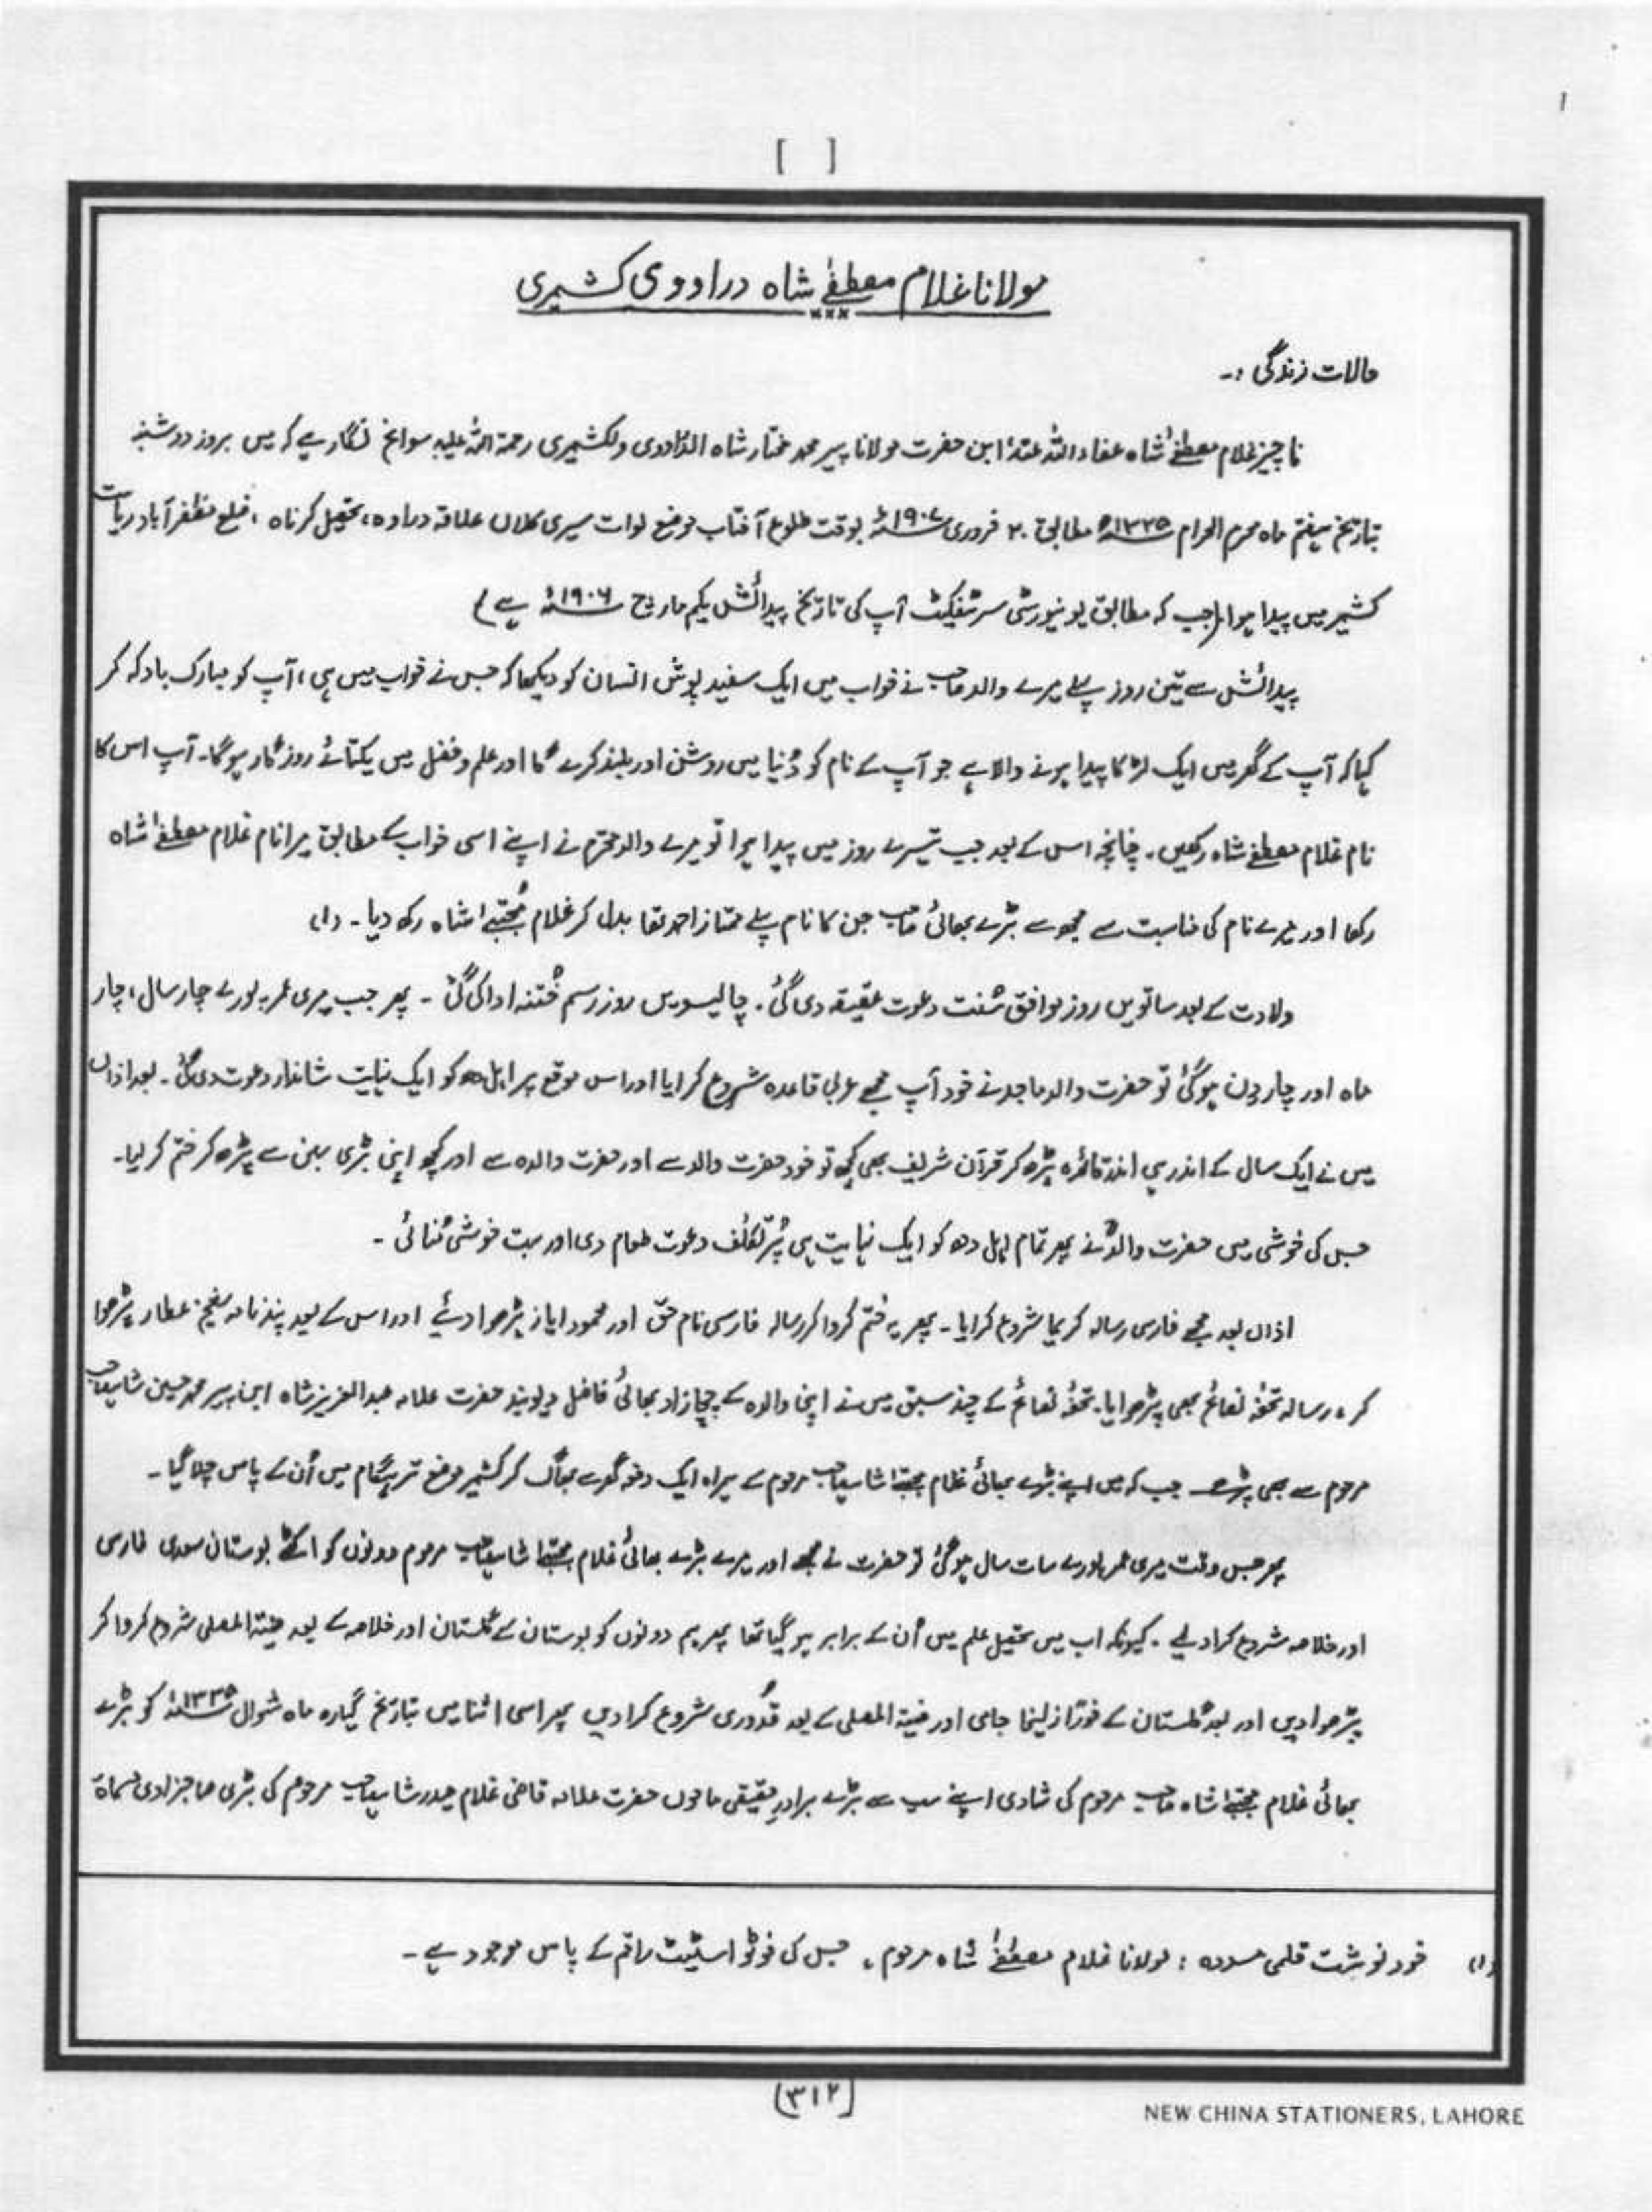 1
[ ]
مولانا غلام مصطفےٰ شاہ دراووی کشمیری
×××
حالات زندگی :۔
ناچیز غلام مصطفےٰ شاہ عفاء اللہ عنہُ ابن حضرت مولانا پیر محمد مختار شاہ الدّاودی ولکشمیری رحمۃ اللہ علیہ سوانح نگار ہے کہ میں بروز دوشنبہ
بتاریخ ہفتم ماہ محرم الحرام ۱۳۲۵ھ مطابق ۲۰ فروری ۱۹۰۷ء بوقت طلوع آفتاب موضع لوات سیری کلاں علاقہ دراوہ، تحصیل کرناہ، ضلع مظفر آباد ریاست
کشمیر میں پیدا ہوا (جب کہ مطابق یونیورسٹی سرٹیفکیٹ آپ کی تاریخ پیدائش یکم مارچ ۱۹۰۶ء ہے)
پیدائش سے تین روز پہلے میرے والد صاحب نے خواب میں ایک سفید پوش انسان کو دیکھا کہ جس نے خواب میں ہی، آپ کو مبارک باد کہہ کر
کہا کہ آپ کے گھر میں ایک لڑکا پیدا ہونے والا ہے جو آپ کے نام کو دُنیا میں روشن اور بلند کرے گا اور علم و فضل میں یکتائے روزگار ہوگا۔ آپ اس کا
نام غلام مصطفےٰ شاہ رکھیں۔ چنانچہ اس کے بعد جب تیسرے روز میں پیدا ہوا تو میرے والد محترم نے اپنے اسی خواب کے مطابق میرا نام غلام مصطفےٰ شاہ
رکھا اور میرے نام کی مناسبت سے مجھ سے بڑے بھائی صاحب جن کا نام پہلے ممتاز احمد تھا بدل کر غلام مُجتبےٰ شاہ رکھ دیا۔ (۱)
ولادت کے بعد ساتویں روز موافق سُنت دعوت عقیقہ دی گئی۔ چالیسویں روز رسم خُتنہ ادا کی گئی۔ پھر جب میری عمر پورے چار سال، چار
ماہ اور چار دن ہوگئی تو حضرت والد ماجد نے خود آپ مجھے عربی قاعدہ شروع کرایا اور اس موقع پر اہل دھ کو ایک نہایت شاندار دعوت دی گئی۔ بعد ازاں
میں نے ایک سال کے اندر ہی اندر قاعدہ پڑھ کر قرآن شریف بھی کچھ تو خود حضرت والد سے اور حضرت والدہ سے اور کچھ اپنی بڑی بہن سے پڑھ کر ختم کر لیا۔
جس کی خوشی میں حضرت والدؒ نے پھر تمام اہل دھ کو ایک نہایت ہی پُر تکلف دعوت طعام دی اور بہت خوشی مُنائی۔
ازاں بعد مجھے فارسی رسالہ کریما شروع کرایا۔ پھر یہ خُتم کروا کر رسالہ فارسی نام حق اور محمود ایاز پڑھوا دئیے اور اس کے بعد پند نامہ عطار پڑھوا
کر، رسالہ تحفہُ نصائح بھی پڑھوایا۔ تحفہُ نصائح کے چند سبق میں نے اپنی والدہ کے چچا زاد بھائی فاضل دیوبند حضرت علامہ عبدالعزیز شاہ ابن پیر محمد حسین شاہ صاحب
مرحوم سے بھی پڑھے جب کہ میں اپنے بڑے بھائی غلام مجتبےٰ شاہ صاحب مرحوم کے ہمراہ ایک دفعہ گھر سے بھاگ کر کشمیر موضع ترہگام میں اُن کے پاس چلا گیا۔
پھر جس وقت میری عمر پورے سات سال ہوگئی تو حضرت نے مجھے اور میرے بڑے بھائی غلام مجتبےٰ شاہ صاحب مرحوم دونوں کو اکٹھے بوستان سعدی فارسی
اور خلاصہ شروع کرا دیے۔ کیونکہ اب میں تحصیل علم میں اُن کے برابر ہو گیا تھا پھر ہم دونوں کو بوستان کے گلستان اور خلاصہ کے بعد منیۃ المصلی شروع کروا کر
پڑھوا دیں اور بعد گلستان کے فوراً زلیخا جامی اور منیۃ المصلی کے بعد قُدوری شروع کرا دیں پھر اسی اثنا میں بتاریخ گیارہ ماہ شوال ۱۳۳۵ھ کو بڑے
بھائی غلام مجتبےٰ شاہ صاحب مرحوم کی شادی اپنے سب سے بڑے برادرِ حقیقی ماموں حضرت علامہ قاضی غلام حیدر شاہ صاحب مرحوم کی بڑی صاحبزادی مسماۃ
(۱) خود نوشت قلمی مسودہ : مولانا غلام مصطفےٰ شاہ مرحوم، جس کی فوٹو اسٹیٹ راقم کے پاس موجود ہے۔
(۳۱۲)
NEW CHINA STATIONERS, LAHORE